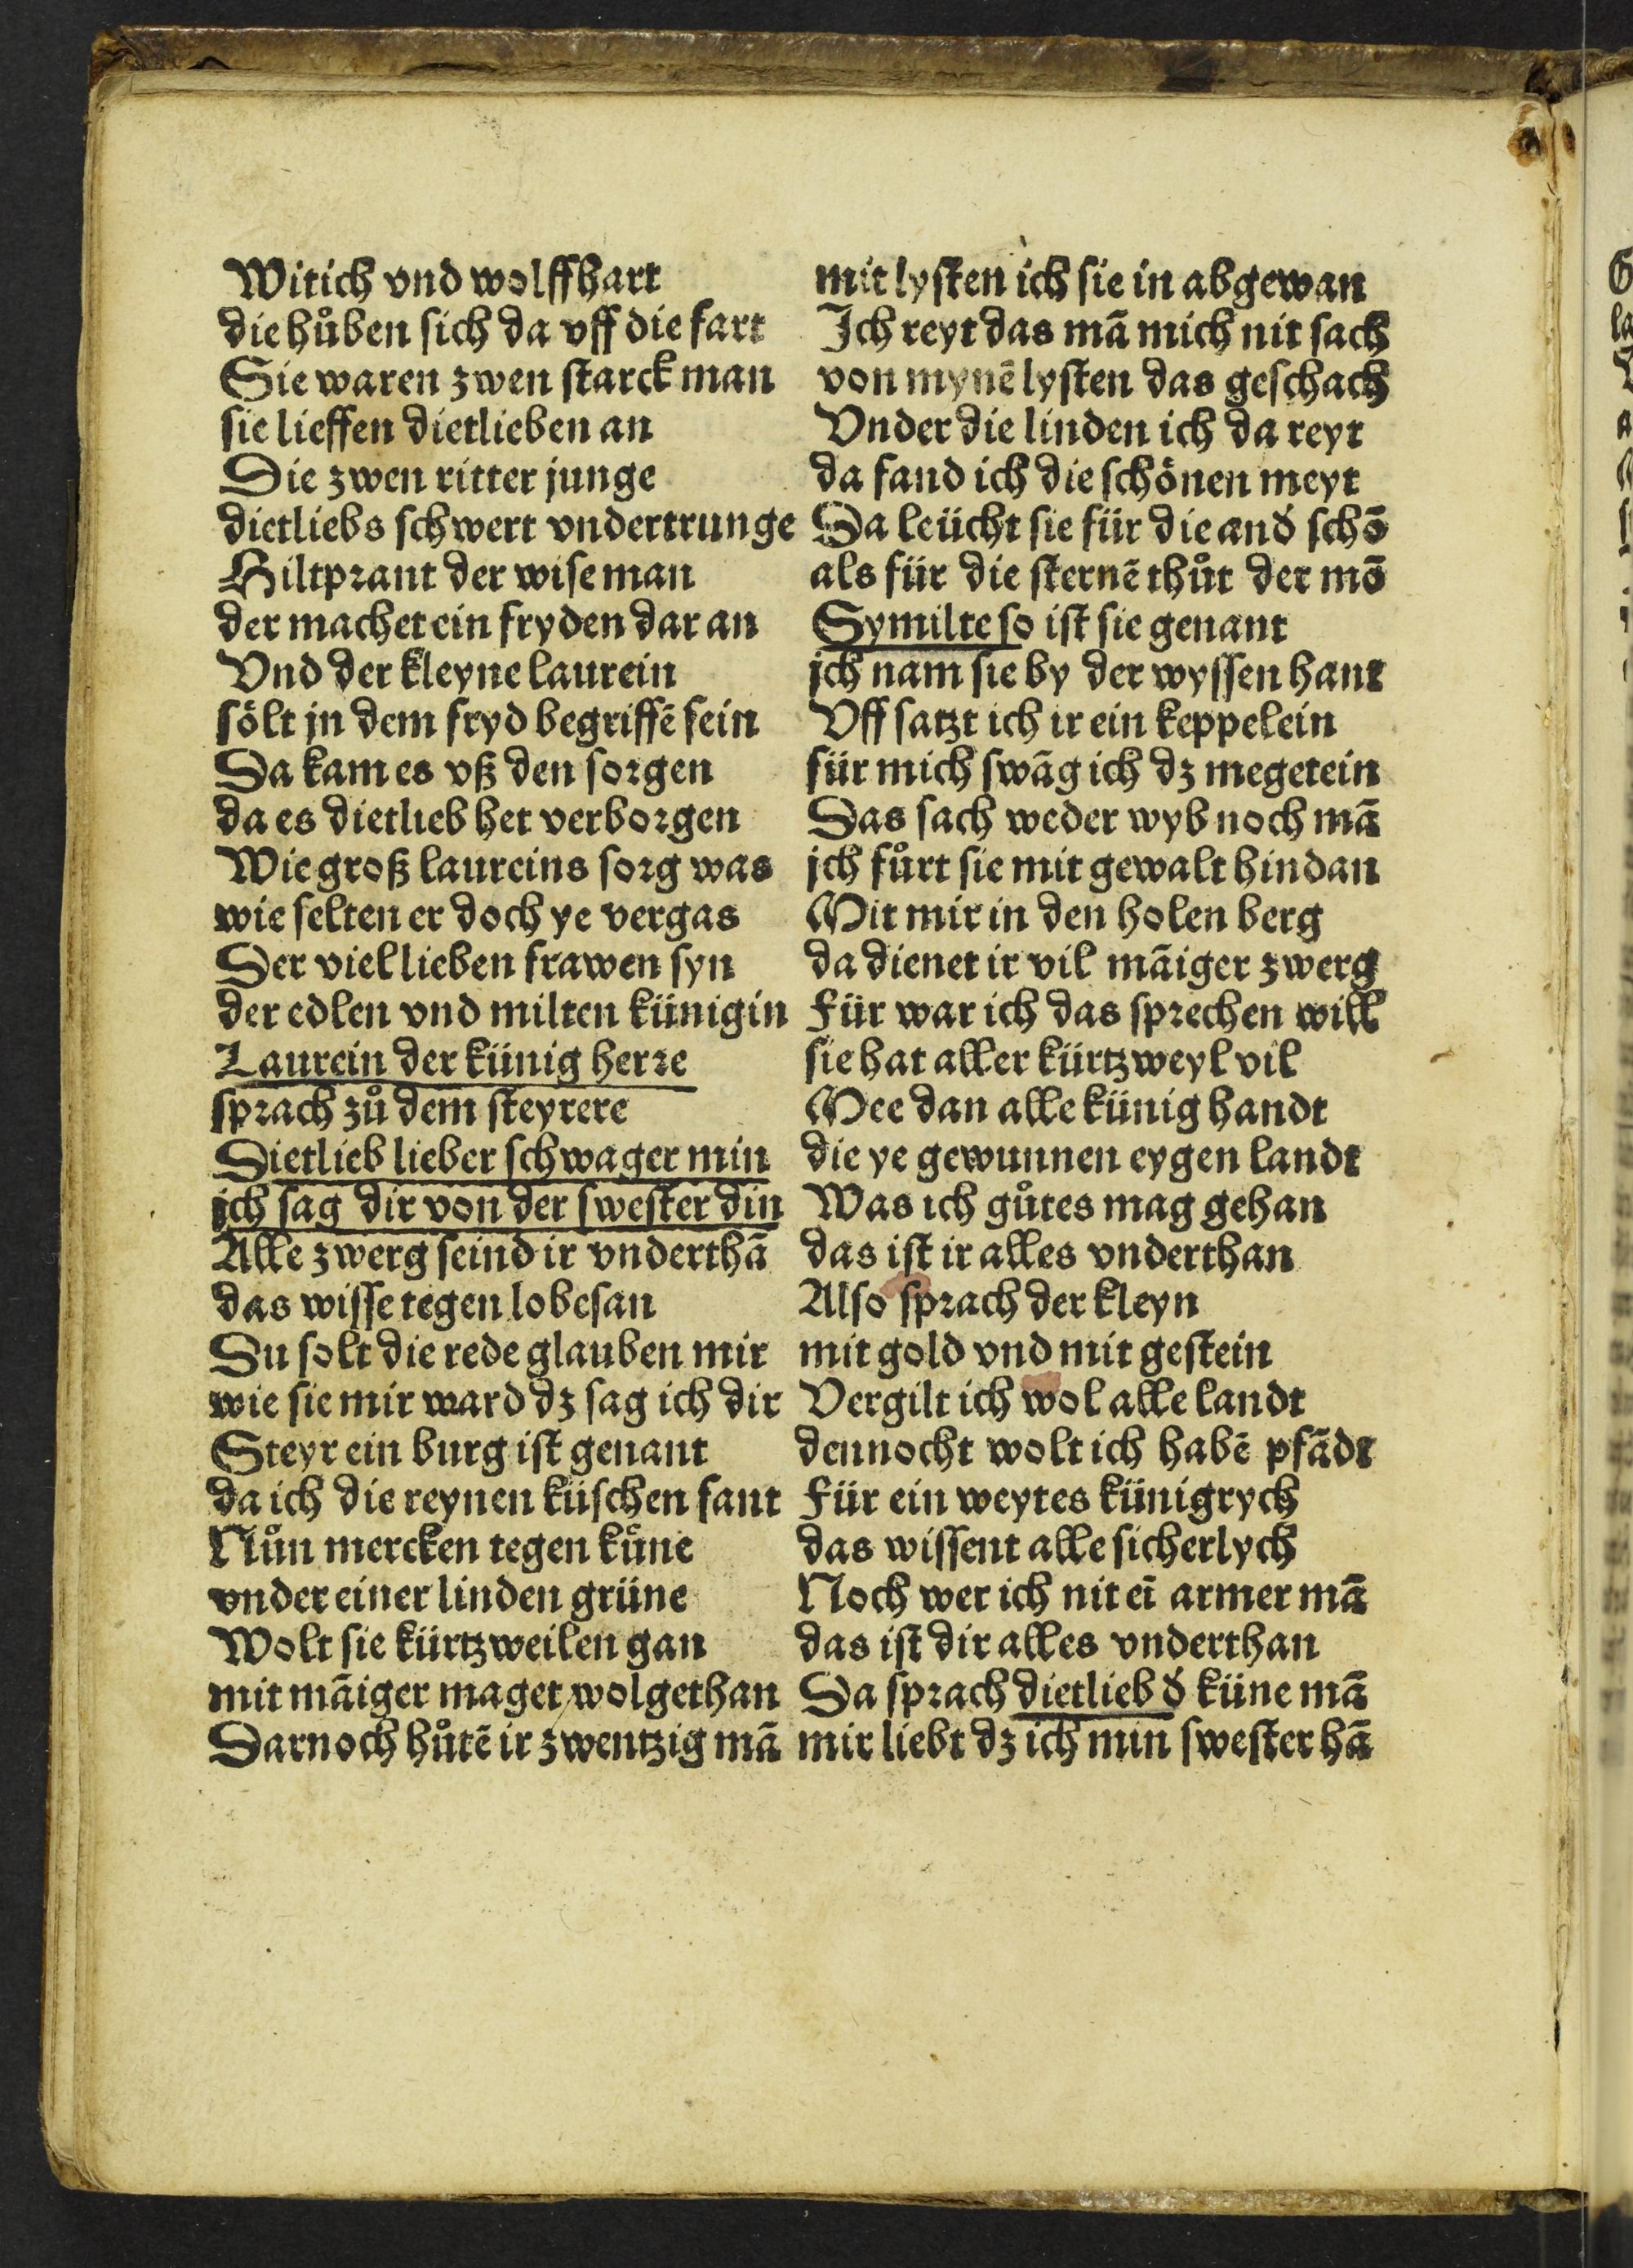 Witich vnd wolffhart
die hůben sich da vff die fart
Sie waren zwen starck man
sie lieffen dietlieben an
Die zwen ritter junge
dietliebs schwert vndertrunge
Hiltprant der wise man
der machet ein fryden dar an
Vnd der kleyne laurein
sölt jn dem fryd begriffē sein
Da kam es vß den sorgen
da es dietlieb het verborgen
Wie groß laureins sorg was
wie selten er doch ye vergas
Der viel lieben frawen syn
der edlen vnd milten künigin
Laurein der künig herre
sprach zů dem steyrere
Dietlieb lieber schwager min
ich sag dir von der swester din
Alle zwerg seind ir vnderthā
das wisse tegen lobesan
Du solt die rede glauben mir
wie sie mir ward dz sag ich dir
Steyr ein burg ist genant
da ich die reynen küschen fant
Nůn mercken tegen kůne
vnder einer linden grüne
Wolt sie kürtzweilen gan
mit māiger maget wolgethan
Darnoch hůtē ir zwentzig mā
mit lysten ich sie in abgewan
Ich reyt das mā mich nit sach
von mynē lysten das geschach
Vnder die linden ich da reyt
da fand ich die schönen meyt
Da leücht sie für die and᷑ schō
als für die sternē thůt der mō
Symilte so ist sie genant
ich nam sie by der wyssen hant
Vff satzt ich ir ein keppelein
für mich swāg ich dz megetein
Das sach weder wyb noch mā
ich fůrt sie mit gewalt hindan
Mit mir in den holen berg
da dienet ir vil māiger zwerg
Für war ich das sprechen will
sie hat aller kürtzweyl vil
Mee dan alle künig handt
die ye gewunnen eygen landt
Was ich gůtes mag gehan
das ist ir alles vnderthan
Also sprach der kleyn
mit gold vnd mit gestein
Vergilt ich wol alle landt
dennocht wolt ich habē pfādt
Für ein weytes künigrych
das wissent alle sicherlych
Noch wer ich nit eī armer mā
das ist dir alles vnderthan
Da sprach dietlieb d᷑ küne mā
mir liebt dz ich min swester hā